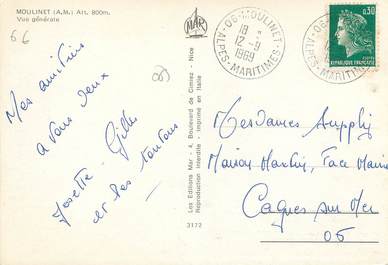 MOULINET (A.M.) Alt. 800m.
Vue générale
66
Mes amitiés
à vous deux
Gilles
Josette
et les toutous
MAR
Les Editions Mar - 4, Boulevard de Cimiez - Nice
Reproduction Interdite - Imprimé en Italie
3172
06-MOULINET
18
12-9
1969
ALPES-MARITIMES
0,30
REPUBLIQUE FRANÇAISE
POSTES
Mesdames Aupply
Maison Martin, Face Mairie
Cagnes sur Mer
06